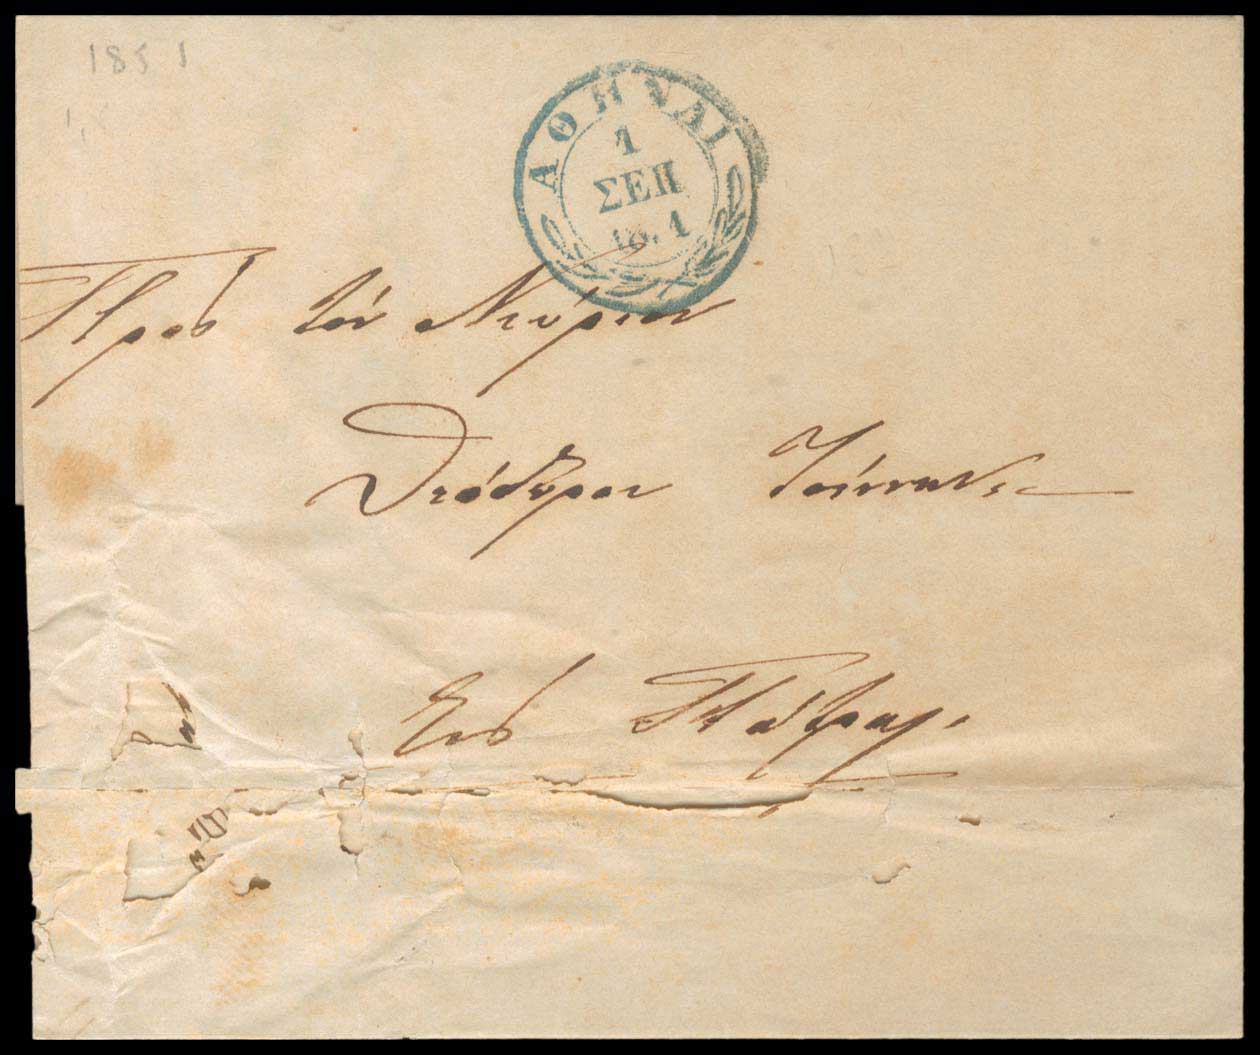 1851
ΑΘΗΝΑΙ
1
ΣΕΠ
Πρὸς τὸν Κύριον
Θεόδωρον
Εἰς Πάτρας.